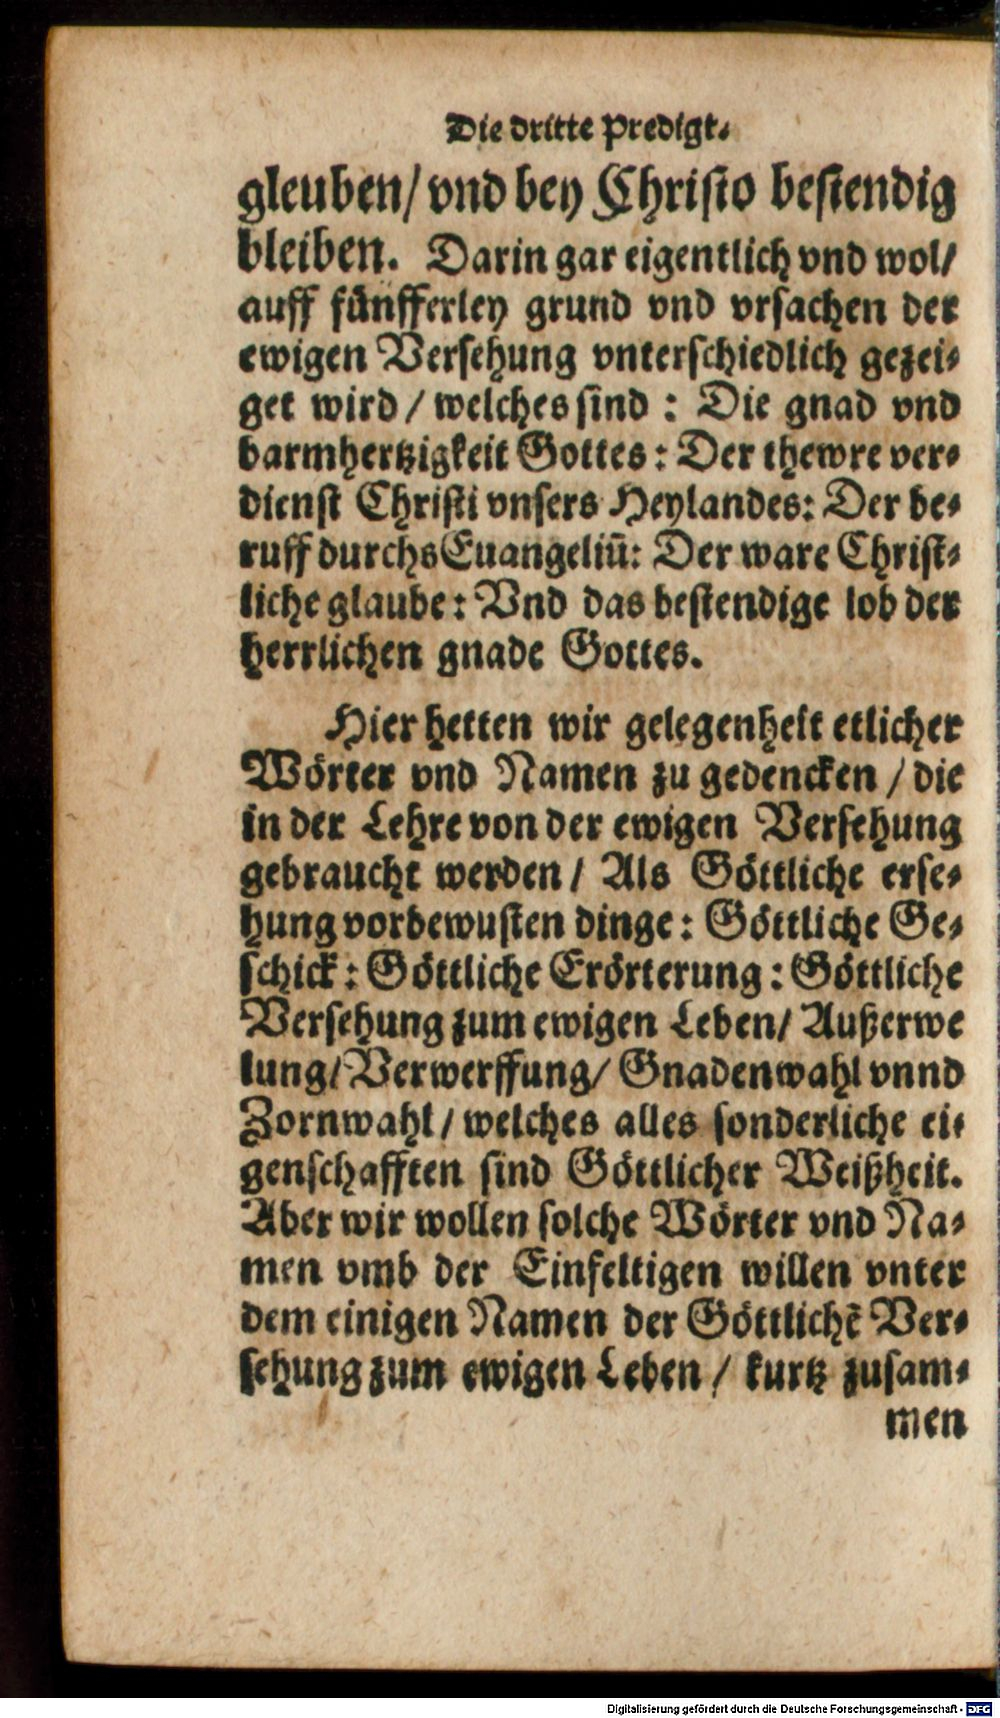 Die dritte Predigt.
gleuben/ vnd bey Christo bestendig
bleiben. Darin gar eigentlich vnd wol/
auff fünfferley grund vnd vrsachen der
ewigen Versehung vnterschiedlich gezei-
get wird / welches sind : Die gnad vnd
barmhertzigkeit Gottes : Der thewre ver-
dienst Christi vnsers Heylandes: Der be-
ruff durchs Euangeliū: Der ware Christ-
liche glaube : Vnd das bestendige lob der
herrlichen gnade Gottes.
Hier hetten wir gelegenheit etlicher
Wörter vnd Namen zu gedencken / die
in der Lehre von der ewigen Versehung
gebraucht werden / Als Göttliche erse-
hung vorbewusten dinge : Göttliche Ge-
schick : Göttliche Erörterung : Göttliche
Versehung zum ewigen Leben/ Außerwe
lung/ Verwerffung/ Gnadenwahl vnnd
Zornwahl / welches alles sonderliche ei-
genschafften sind Göttlicher Weißheit.
Aber wir wollen solche Wörter vnd Na-
men vmb der Einfeltigen willen vnter
dem einigen Namen der Göttlichē Ver-
sehung zum ewigen Leben / kurtz zusam-
men
Digitalisierung gefördert durch die Deutsche Forschungsgemeinschaft - DFG